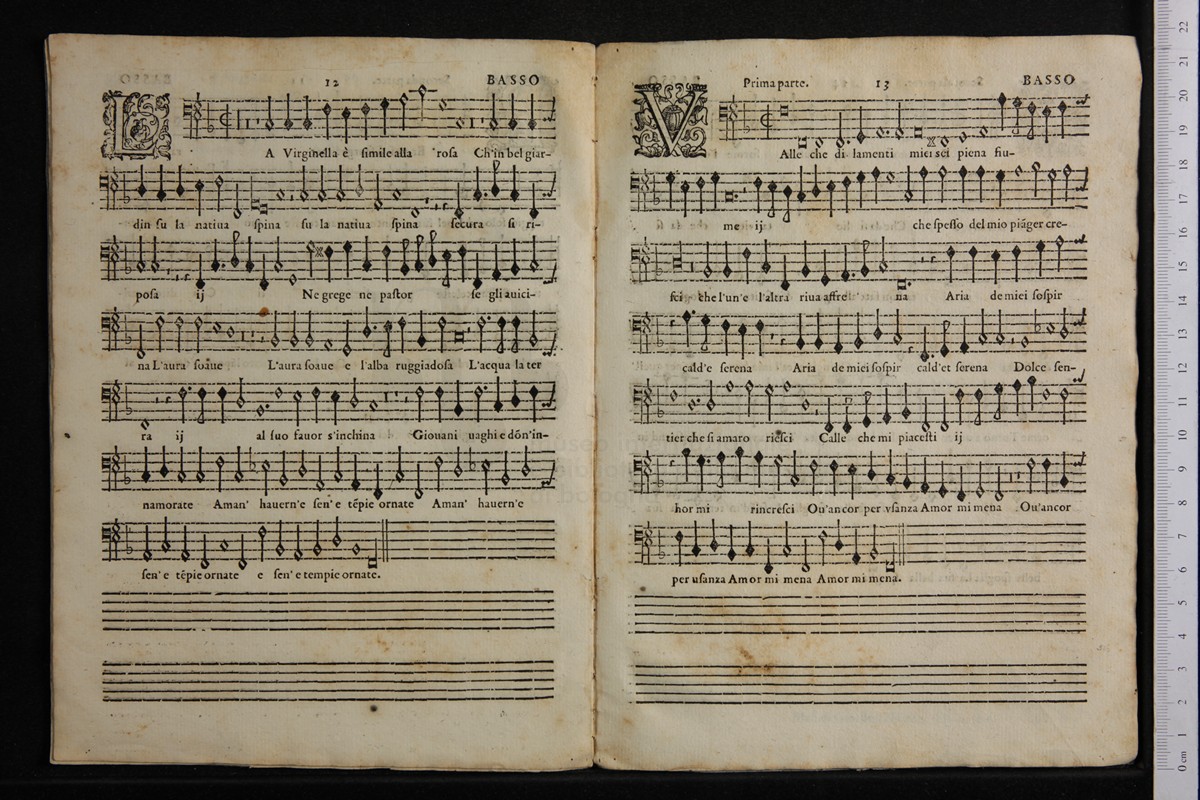 12 BASSO
LA Virginella è simile alla rosa Ch'in bel giar-
din su la natiua spina su la natiua spina secura si ri-
posa ij Ne grege ne pastor se gli auici-
na L'aura soaue L'aura soaue e l'alba ruggiadosa L'acqua la ter
ra ij al suo fauor s'inchina Giouani uaghi e dōn'in-
namorate Aman' hauern'e sen' e tēpie ornate Aman' hauern'e
sen' e tēpie ornate e sen' e tempie ornate.
Prima parte. 13 BASSO
VAlle che di lamenti miei sei piena fiu-
me ij che spesso del mio piāger cre-
sci che l'un'e l'altra riua affre- na Aria de miei sospir
cald'e serena Aria de miei sospir cald'et serena Dolce sen-
tier che si amaro riesci Calle che mi piacesti ij
hor mi rincresci Ou'ancor per vsanza Amor mi mena Ou'ancor
per usanza Amor mi mena Amor mi mena.
22
21
20
19
18
17
16
15
14
13
12
11
10
9
8
7
6
5
4
3
2
1
0 cm